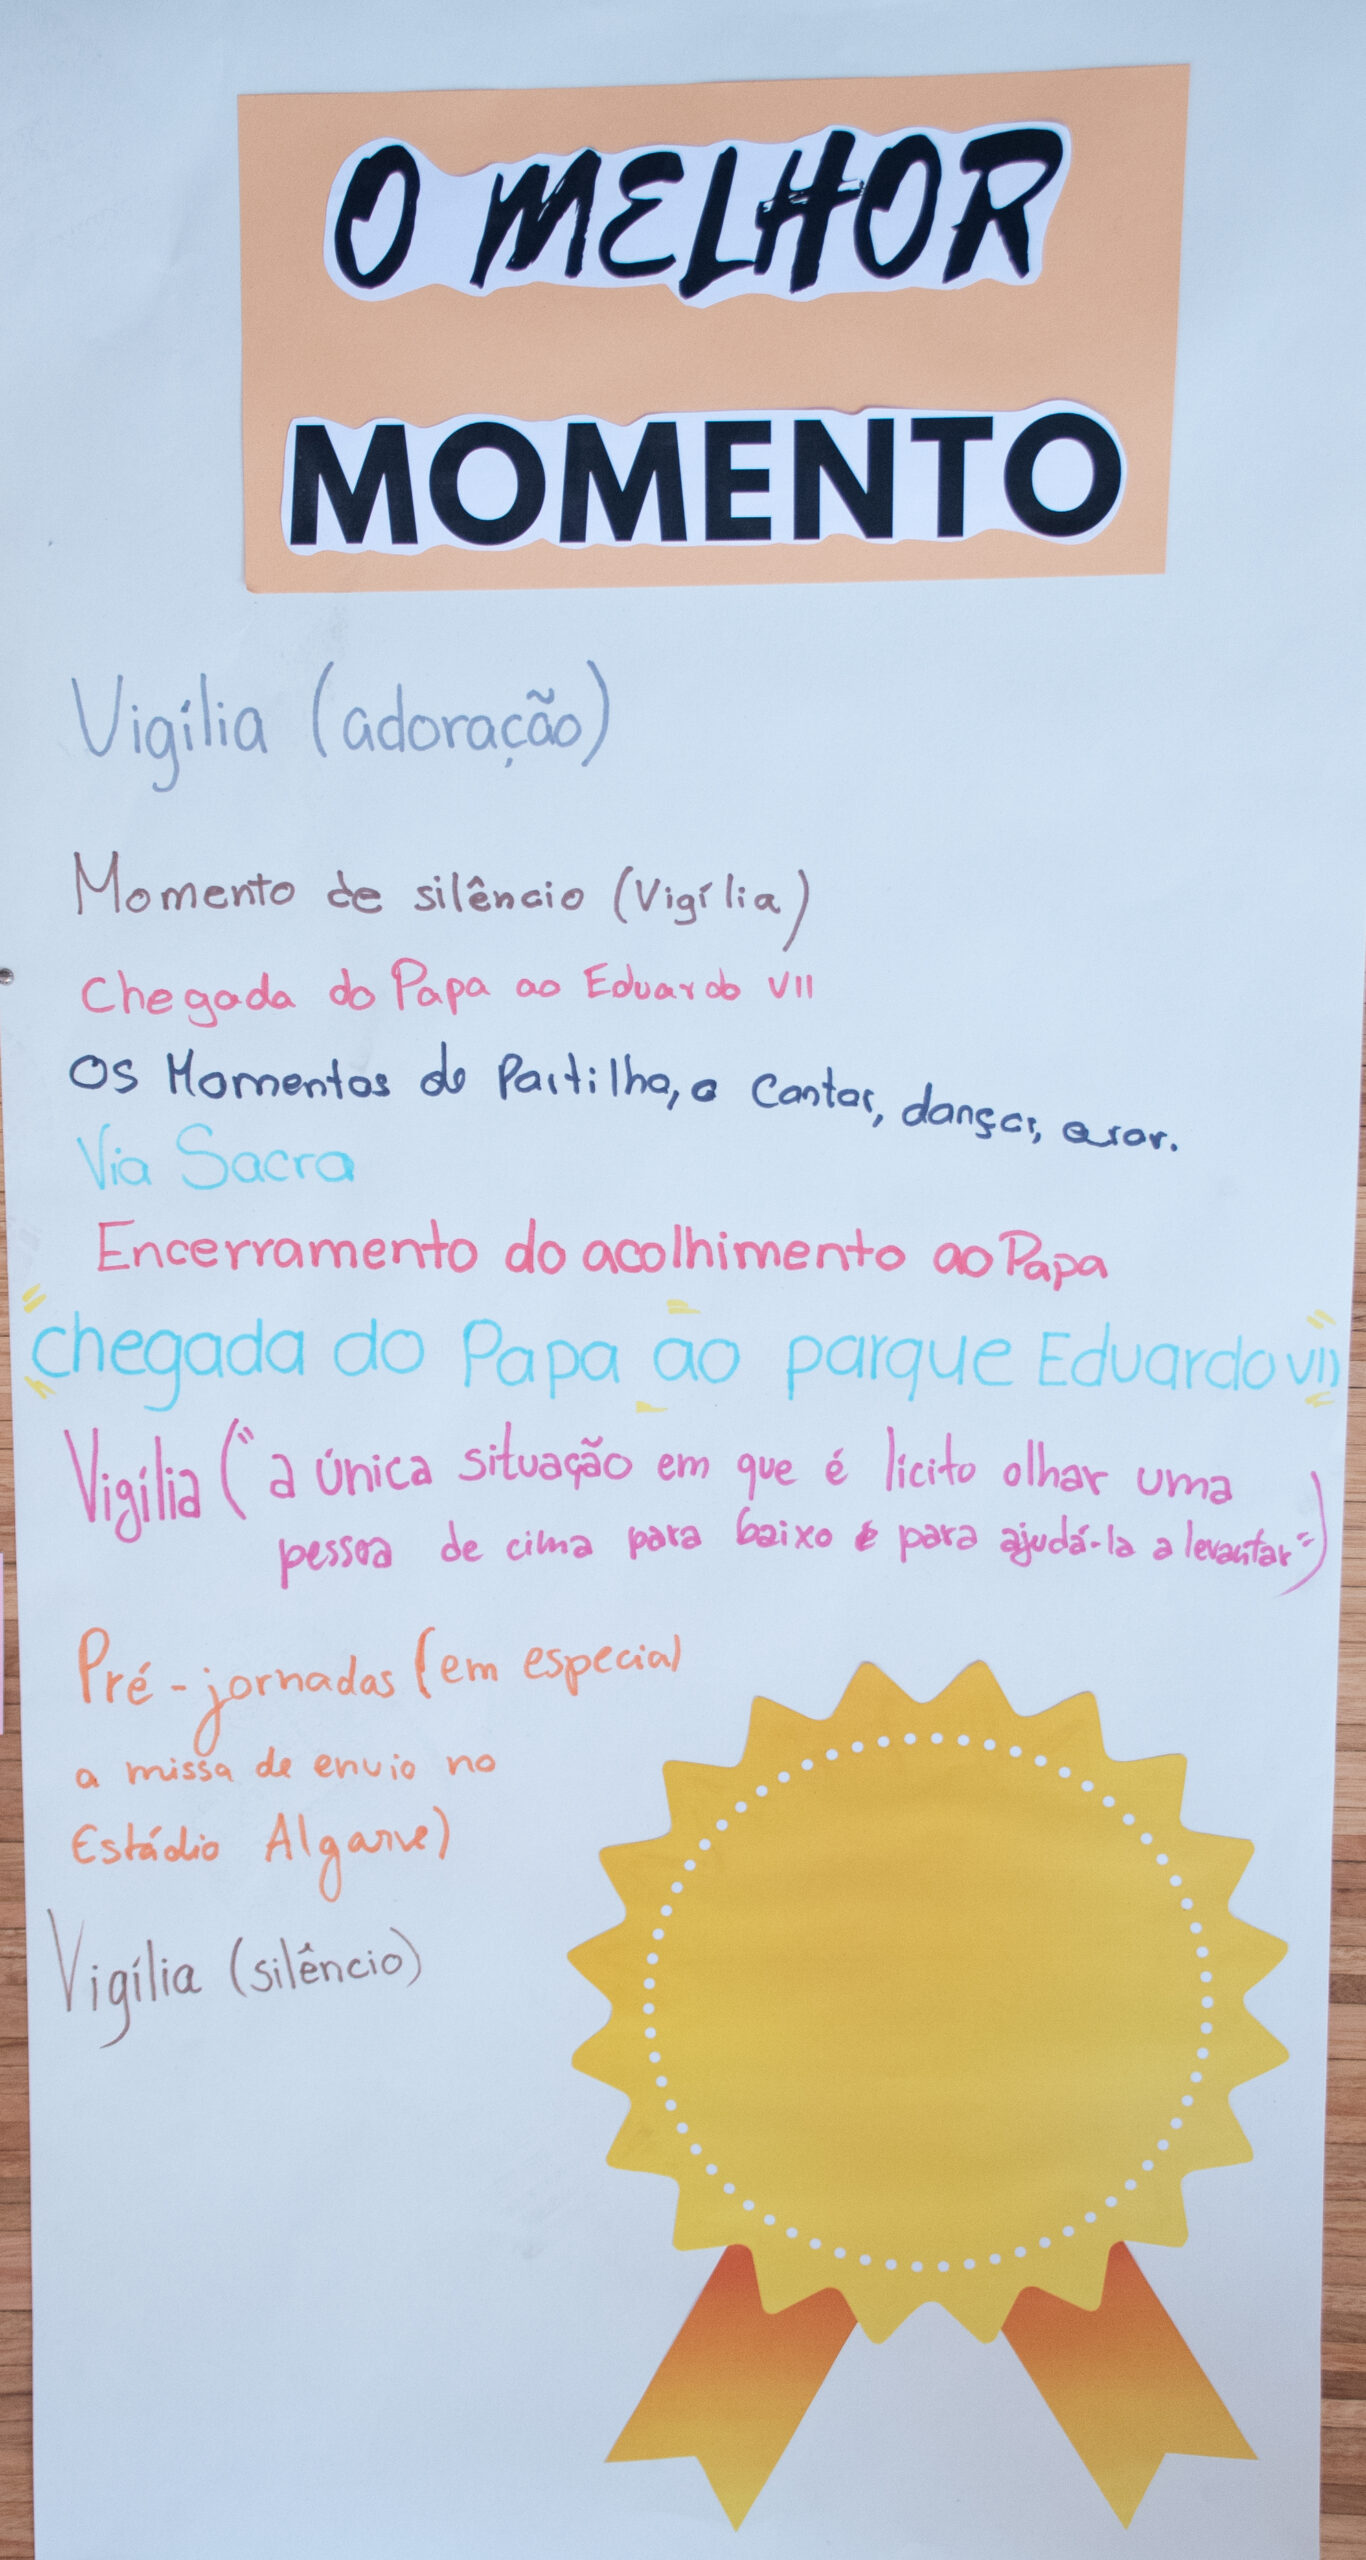 O MELHOR
MOMENTO
Vigília (adoração)
Momento de silêncio (Vigília)
Chegada do Papa ao Eduardo VII
Os Momentos de Partilha, a cantar, dançar, orar.
Via Sacra
Encerramento do acolhimento ao Papa
chegada do Papa ao parque Eduardo VII
Vigília ("a única situação em que é lícito olhar uma
pessoa de cima para baixo é para ajudá-la a levantar")
Pré-jornadas (em especial
a missa de envio no
Estádio Algarve)
Vigília (silêncio)